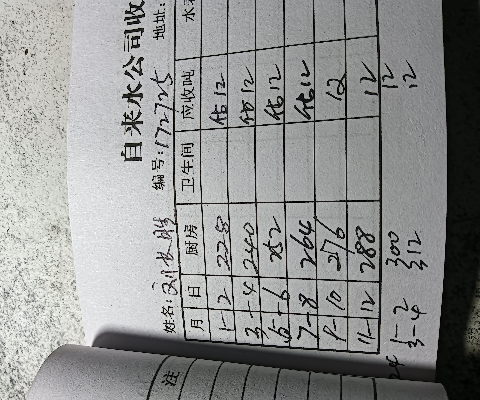 自来水公司收
编号:172725 地址:
姓名:刘
月 日 厨房 卫生间 应收吨 水
1-2 228 估12
3-4 240 估12
5-6 252 估12
7-8 264 估12
9-10 276 12
11-12 288 12
1-2 300 12
3-4 312 12
注